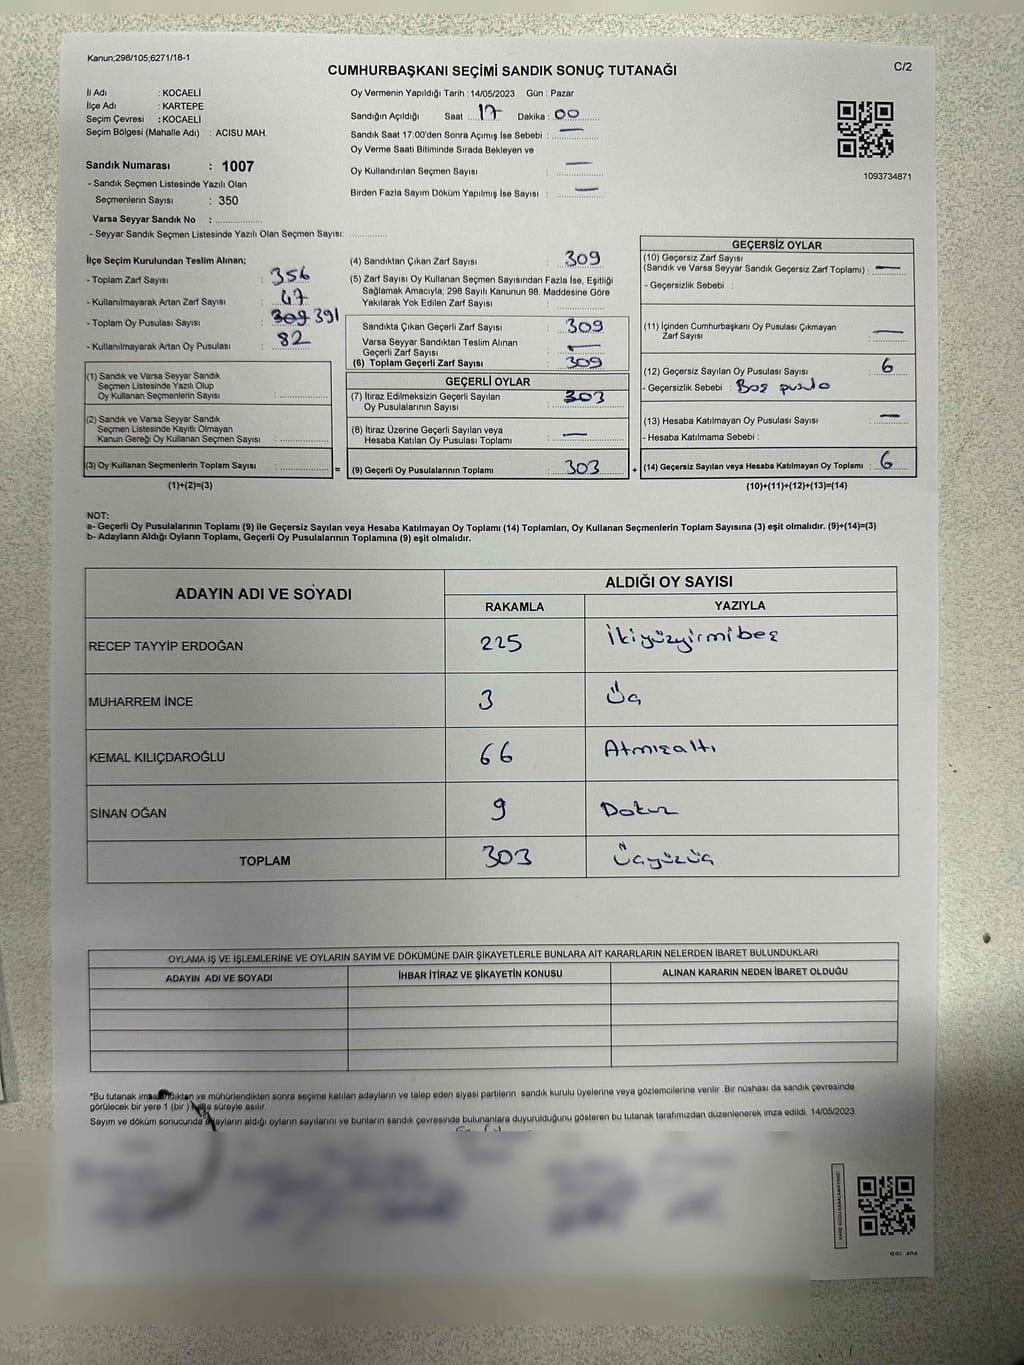 Kanun;298/105,6271/18-1
C/2
CUMHURBAŞKANI SEÇİMİ SANDIK SONUÇ TUTANAĞI
İl Adı : KOCAELİ
İlçe Adı : KARTEPE
Seçim Çevresi : KOCAELİ
Seçim Bölgesi (Mahalle Adı) : ACISU MAH.
Sandık Numarası : 1007
- Sandık Seçmen Listesinde Yazılı Olan
Seçmenlerin Sayısı : 350
Varsa Seyyar Sandık No :
- Seyyar Sandık Seçmen Listesinde Yazılı Olan Seçmen Sayısı:
Oy Vermenin Yapıldığı Tarih : 14/05/2023 Gün : Pazar
Sandığın Açıldığı Saat : 17 Dakika : 00
Sandık Saat 17:00'den Sonra Açımış İse Sebebi : —
Oy Verme Saati Bitiminde Sırada Bekleyen ve
Oy Kullandırılan Seçmen Sayısı : —
Birden Fazla Sayım Döküm Yapılmış İse Sayısı : —
1093734871
İlçe Seçim Kurulundan Teslim Alınan;
- Toplam Zarf Sayısı : 356
- Kullanılmayarak Artan Zarf Sayısı : 47
- Toplam Oy Pusulası Sayısı : 309 391
- Kullanılmayarak Artan Oy Pusulası : 82
(1) Sandık ve Varsa Seyyar Sandık
Seçmen Listesinde Yazılı Olup
Oy Kullanan Seçmenlerin Sayısı :
(2) Sandık ve Varsa Seyyar Sandık
Seçmen Listesinde Kayıtlı Olmayan
Kanun Gereği Oy Kullanan Seçmen Sayısı :
(3) Oy Kullanan Seçmenlerin Toplam Sayısı :
(1)+(2)=(3)
(4) Sandıktan Çıkan Zarf Sayısı : 309
(5) Zarf Sayısı Oy Kullanan Seçmen Sayısından Fazla İse, Eşitliği
Sağlamak Amacıyla, 298 Sayılı Kanunun 98. Maddesine Göre
Yakılarak Yok Edilen Zarf Sayısı :
Sandıkta Çıkan Geçerli Zarf Sayısı : 309
Varsa Seyyar Sandıktan Teslim Alınan
Geçerli Zarf Sayısı : —
(6) Toplam Geçerli Zarf Sayısı : 309
GEÇERLİ OYLAR
(7) İtiraz Edilmeksizin Geçerli Sayılan
Oy Pusulalarının Sayısı : 303
(8) İtiraz Üzerine Geçerli Sayılan veya
Hesaba Katılan Oy Pusulası Toplamı : —
= (9) Geçerli Oy Pusulalarının Toplamı : 303
GEÇERSİZ OYLAR
(10) Geçersiz Zarf Sayısı
(Sandık ve Varsa Seyyar Sandık Geçersiz Zarf Toplamı) : —
- Geçersizlik Sebebi :
(11) İçinden Cumhurbaşkanı Oy Pusulası Çıkmayan
Zarf Sayısı : —
(12) Geçersiz Sayılan Oy Pusulası Sayısı : 6
- Geçersizlik Sebebi : Boş pusula
(13) Hesaba Katılmayan Oy Pusulası Sayısı : —
- Hesaba Katılmama Sebebi :
+ (14) Geçersiz Sayılan veya Hesaba Katılmayan Oy Toplamı : 6
(10)+(11)+(12)+(13)=(14)
NOT:
a- Geçerli Oy Pusulalarının Toplamı (9) ile Geçersiz Sayılan veya Hesaba Katılmayan Oy Toplamı (14) Toplamları, Oy Kullanan Seçmenlerin Toplam Sayısına (3) eşit olmalıdır. (9)+(14)=(3)
b- Adayların Aldığı Oyların Toplamı, Geçerli Oy Pusulalarının Toplamına (9) eşit olmalıdır.
ADAYIN ADI VE SOYADI
ALDIĞI OY SAYISI
RAKAMLA YAZIYLA
RECEP TAYYİP ERDOĞAN 225 İkiyüzyirmibeş
MUHARREM İNCE 3 Üç
KEMAL KILIÇDAROĞLU 66 Atmışaltı
SİNAN OĞAN 9 Dokuz
TOPLAM 303 Üçyüzüç
OYLAMA İŞ VE İŞLEMLERİNE VE OYLARIN SAYIM VE DÖKÜMÜNE DAİR ŞİKAYETLERLE BUNLARA AİT KARARLARIN NELERDEN İBARET BULUNDUKLARI
ADAYIN ADI VE SOYADI İHBAR İTİRAZ VE ŞİKAYETİN KONUSU ALINAN KARARIN NEDEN İBARET OLDUĞU
*Bu tutanak ve mühürlendikten sonra seçime katılan adayların ve talep eden siyasi partilerin sandık kurulu üyelerine veya gözlemcilerine verilir .Bir nüshası da sandık çevresinde
görülecek bir yere 1 (bir ) hafta süreyle asılır.
Sayım ve döküm sonucunda adayların aldığı oyların sayılarını ve bunların sandık çevresinde bulunanlara duyurulduğunu gösteren bu tutanak tarafımızdan düzenlenerek imza edildi. 14/05/2023